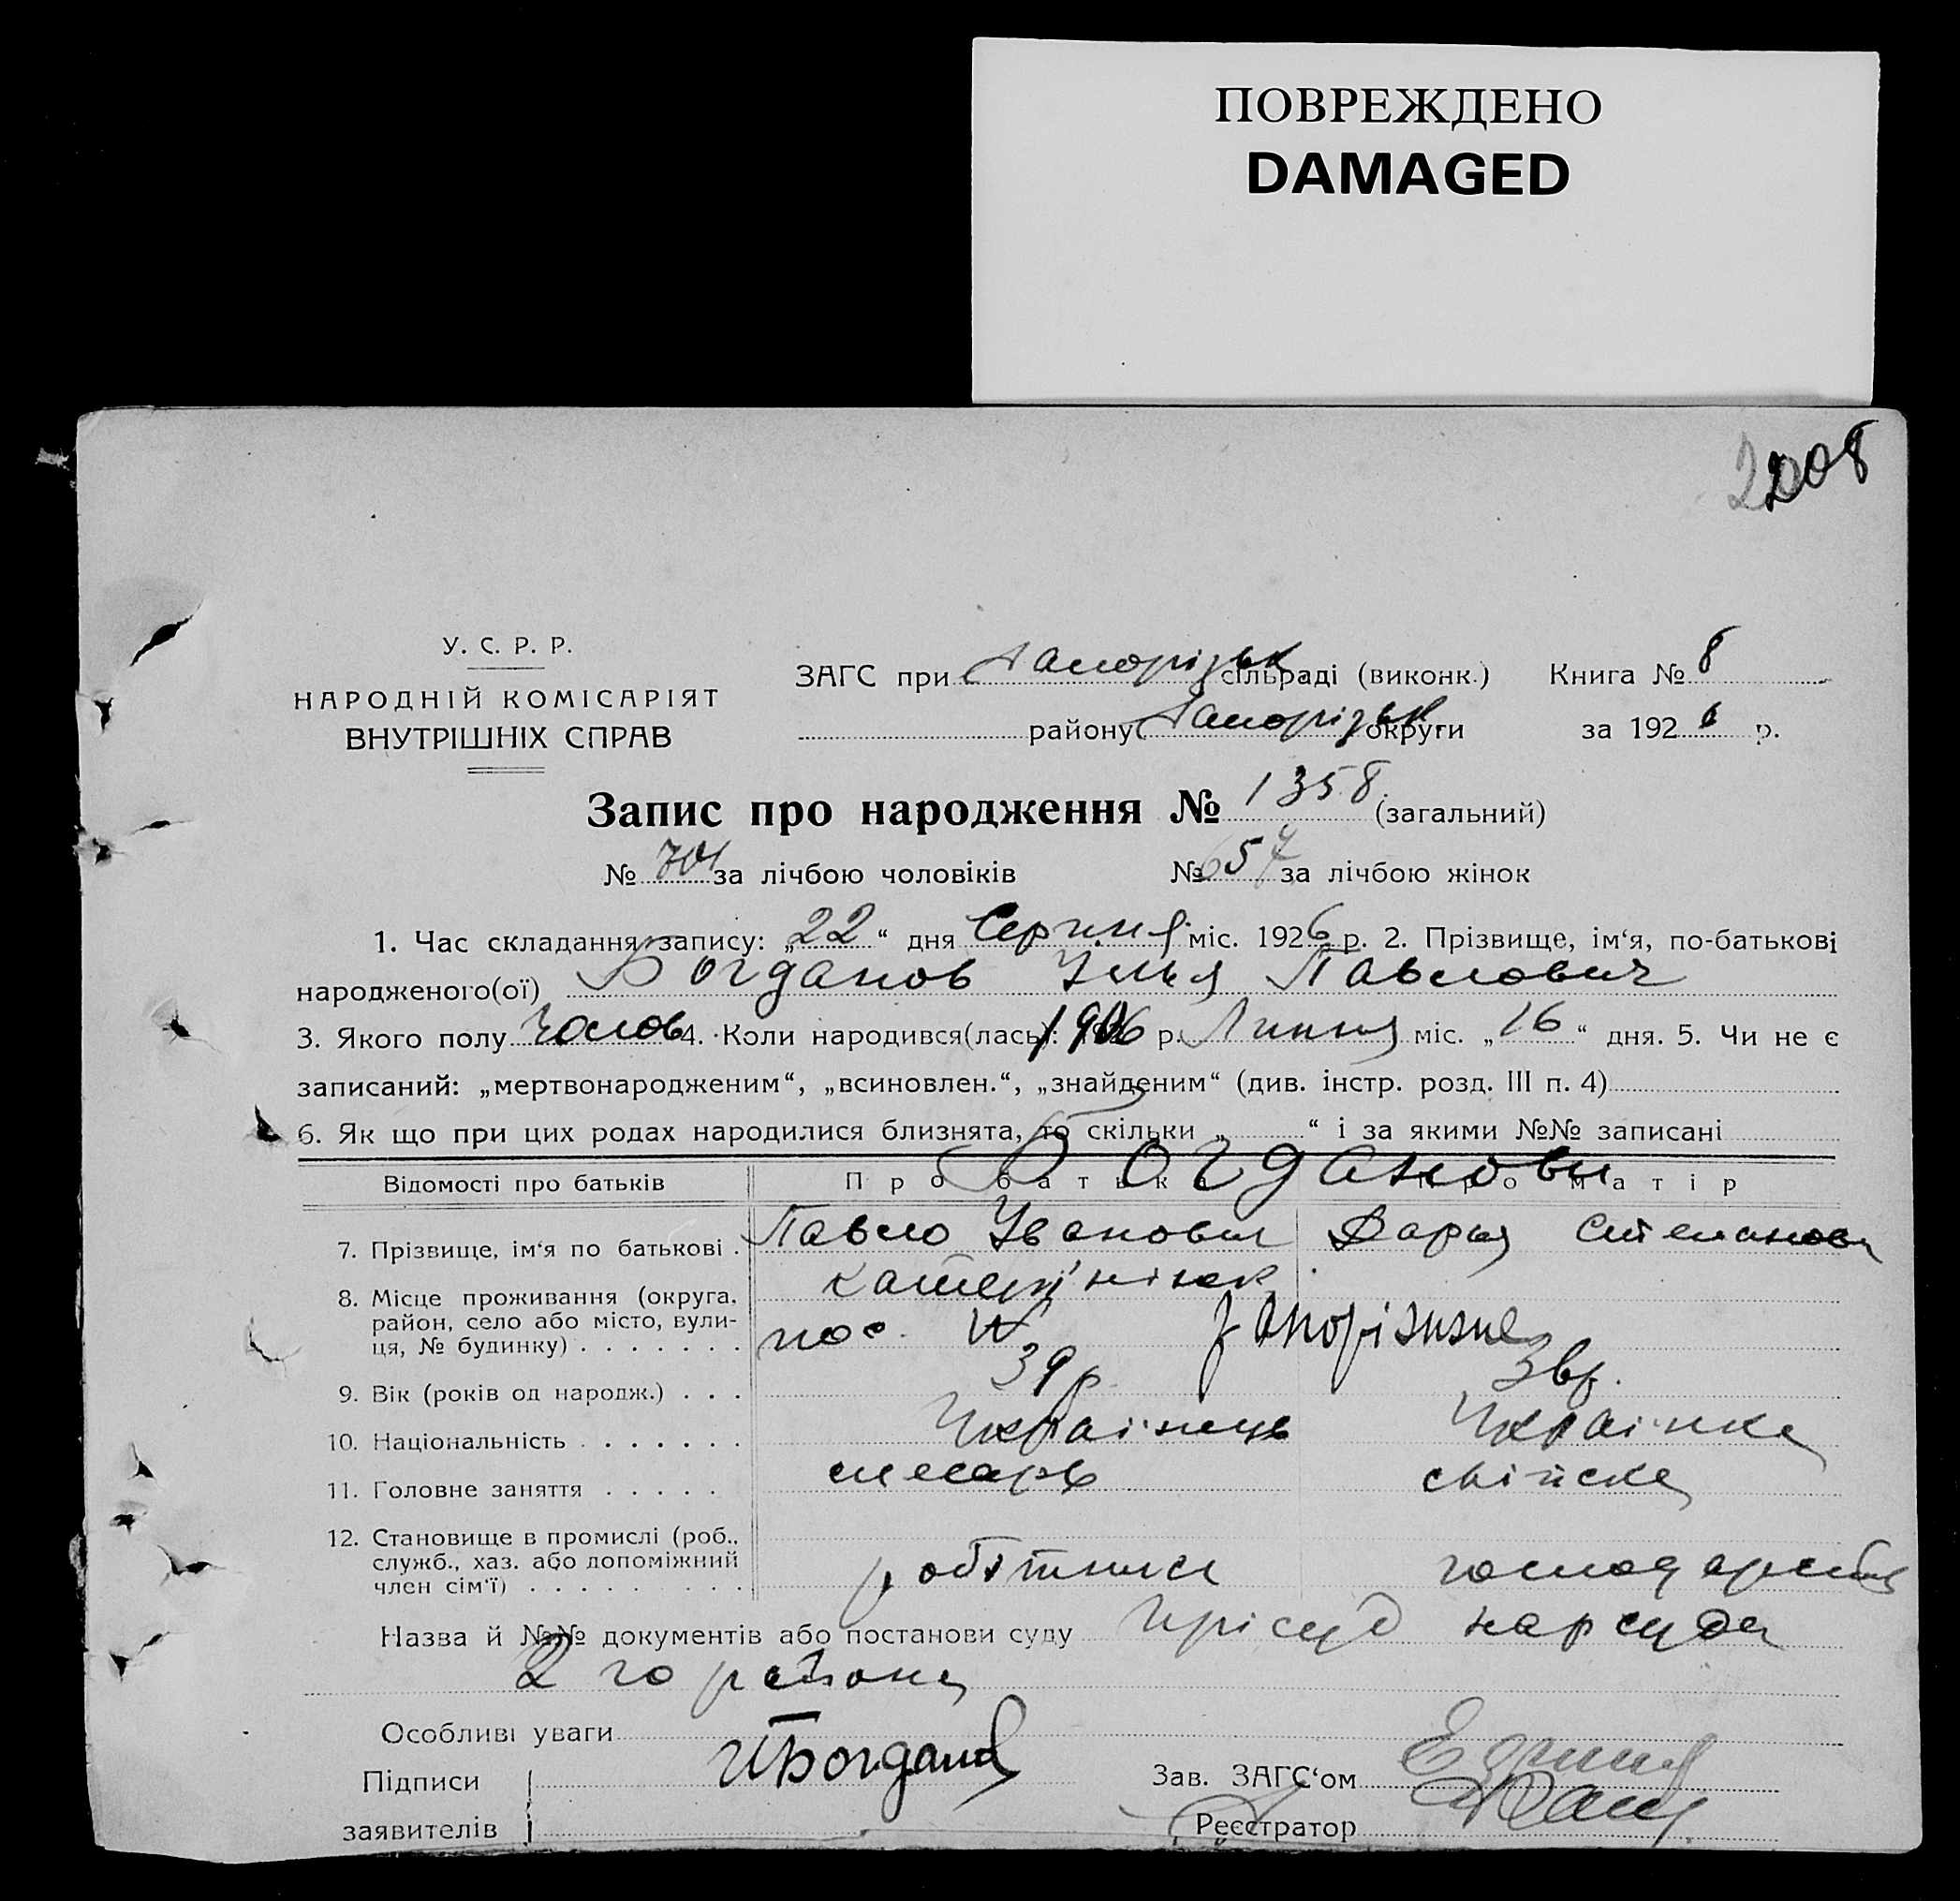 ПОВРЕЖДЕНО
DAMAGED
2008
У. С. Р. Р.
НАРОДНІЙ КОМІСАРІЯТ
ВНУТРІШНІХ СПРАВ
ЗАГС при Запорізьк сільраді (виконк.) Книга № 8
району Запорізьк округи за 1926 р.
Запис про народження № 1358 (загальний)
№ 701 за лічбою чоловіків № 657 за лічбою жінок
1. Час складання запису: „22“ дня Серпня міс. 1926 р. 2. Прізвище, ім‘я, по-батькові
народженого(ої) Богданов Ілья Павлович
3. Якого полу Чолов 4. Коли народився(лась): 1906 р. Липня міс. „16“ дня. 5. Чи не є
записаний: „мертвонародженим“, „всиновлен.“, „знайденим“ (див. інстр. розд. III п. 4)
6. Як що при цих родах народилися близнята, то скільки „ “ і за якими №№ записані
Богданови
Відомості про батьків Про батька Про матір
7. Прізвище, ім‘я по батькові . Павло Іванович Дарья Степанова
8. Місце проживання (округа,
район, село або місто, вули-
ця, № будинку) . . . . . . . пос. Запоріжжя
9. Вік (років од народж.) . . . 39 р. 36 р.
10. Національність . . . . . . . Українець Українка
11. Головне заняття . . . . . слесарь свійске
12. Становище в промислі (роб.,
служб., хаз. або допоміжний
член сім‘ї) . . . . . . . . . робітник господарство
Назва й №№ документів або постанови суду Прісуд нарсуда
2 го района
Особливі уваги
Підписи ИБогданов Зав. ЗАГС‘ом
заявителів Реєстратор